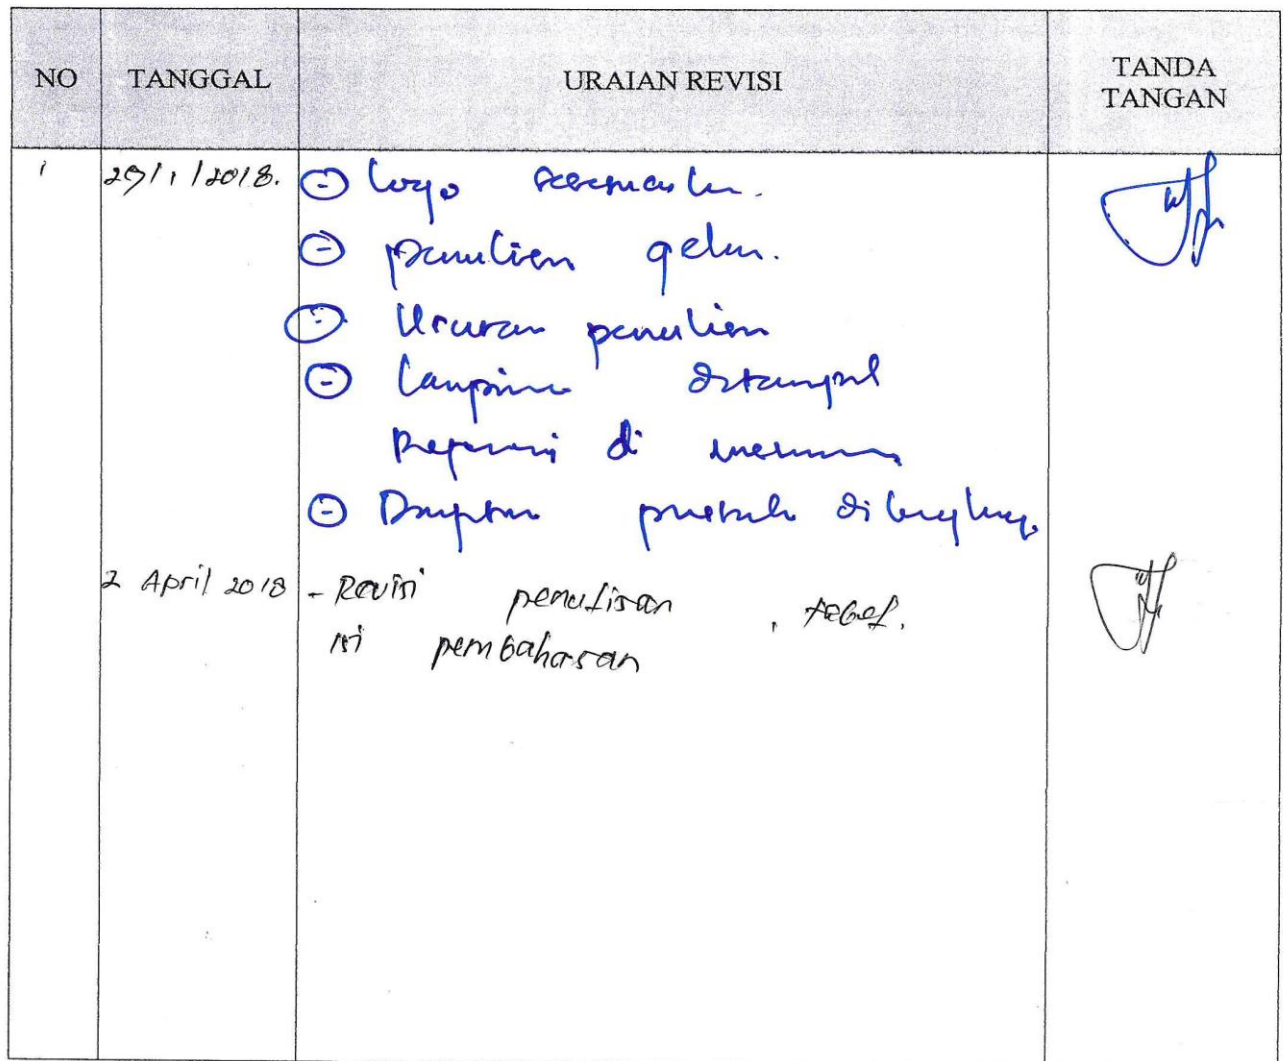 NO TANGGAL URAIAN REVISI TANDA TANGAN
1 29/1/2018. Logo
penulisan gelar.
Ukuran penulisan
Lampiran
di
Daftar pustaka dilengkapi
2 April 2018 - Revisi penulisan, tabel.
isi pembahasan